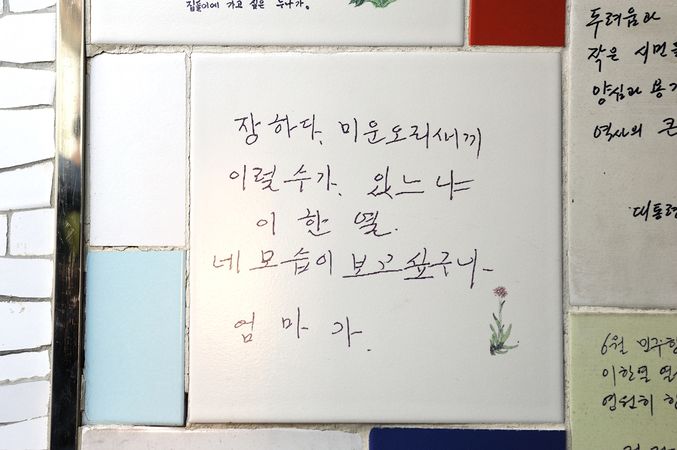 집들이에 가고 싶은 누나가.
장하다. 미운오리새끼
이럴수가. 있느냐
이 한 열.
네 모습이 보고 싶구나-
엄 마 가.
두려움과
작은 시민을
양심과 용기
역사의 큰
대통령
6월 민주항
이한열 열
영원히